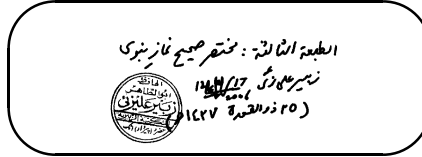 الطبعة الثالثة : مختصر صحيح نماز نبوی
زبیر علی زئی
(۲۵ ذوالقعدة ۱٤۲۷ھ)
الحافظ
ابو الطاهر
زبیر علیزئی